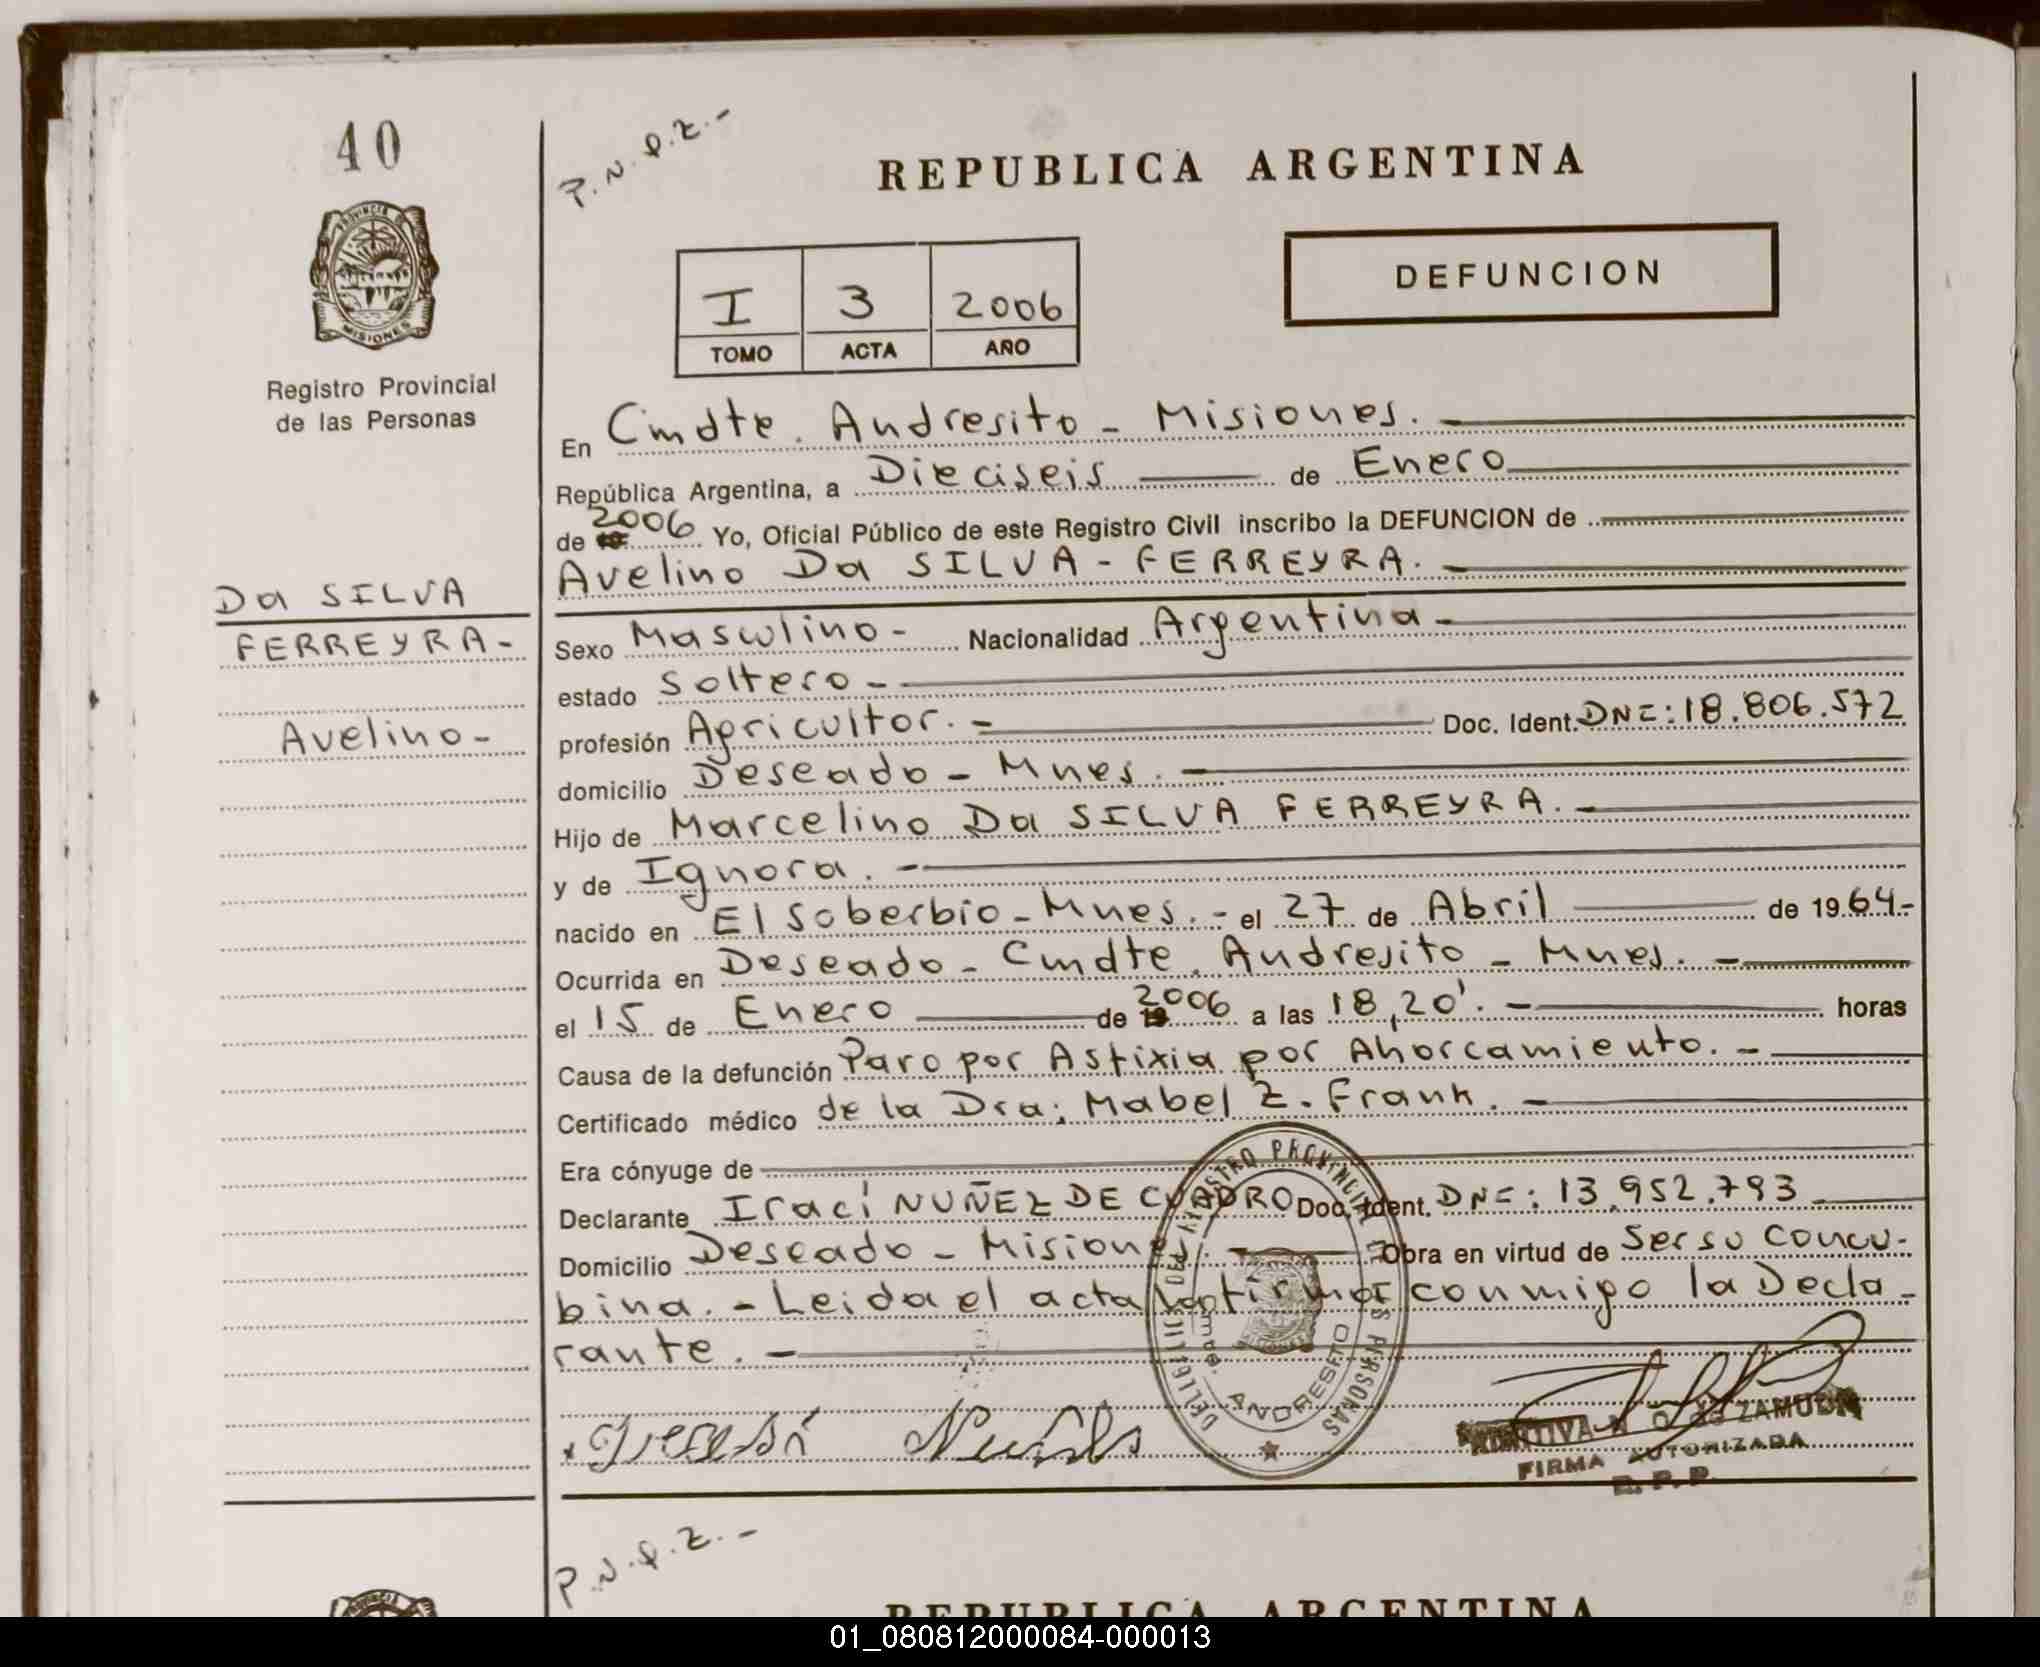 40
P.N.Q.Z.-
REPUBLICA ARGENTINA
PROVINCIA DE
MISIONES
Registro Provincial
de las Personas
I 3 2006
TOMO ACTA AÑO
DEFUNCION
En Cmdte. Andresito - Misiones.
República Argentina, a Dieciseis de Enero
de 19 2006 Yo, Oficial Público de este Registro Civil inscribo la DEFUNCION de
Avelino Da SILVA - FERREYRA.
Da SILVA
FERREYRA-
Avelino-
Sexo Masculino- Nacionalidad Argentina-
estado Soltero-
profesión Agricultor.- Doc. Ident. DNI: 18.806.572
domicilio Deseado - Mnes.-
Hijo de Marcelino Da SILVA FERREYRA.-
y de Ignora.-
nacido en El Soberbio - Mnes.- el 27 de Abril de 1964-
Ocurrida en Deseado - Cmdte. Andresito - Mnes.-
el 15 de Enero de 19 2006 a las 18,20'.- horas
Causa de la defunción Paro por Asfixia por Ahorcamiento.-
Certificado médico de la Dra: Mabel Z. Frank.-
Era cónyuge de
Declarante Iraci NUÑEZ DE CUADRO Doc. Ident. DNI: 13.952.793
Domicilio Deseado - Misiones.- Obra en virtud de Ser su Concu-
bina.- Leida el acta la firma conmigo la Decla-
rante.-
DELEGACION DEL REGISTRO PROVINCIAL DE LAS PERSONAS
Cmte. ANDRESITO
ZAMUDIO
FIRMA AUTORIZADA
R.P.P.
P.N.Q.Z.-
REPUBLICA ARGENTINA
01_080812000084-000013